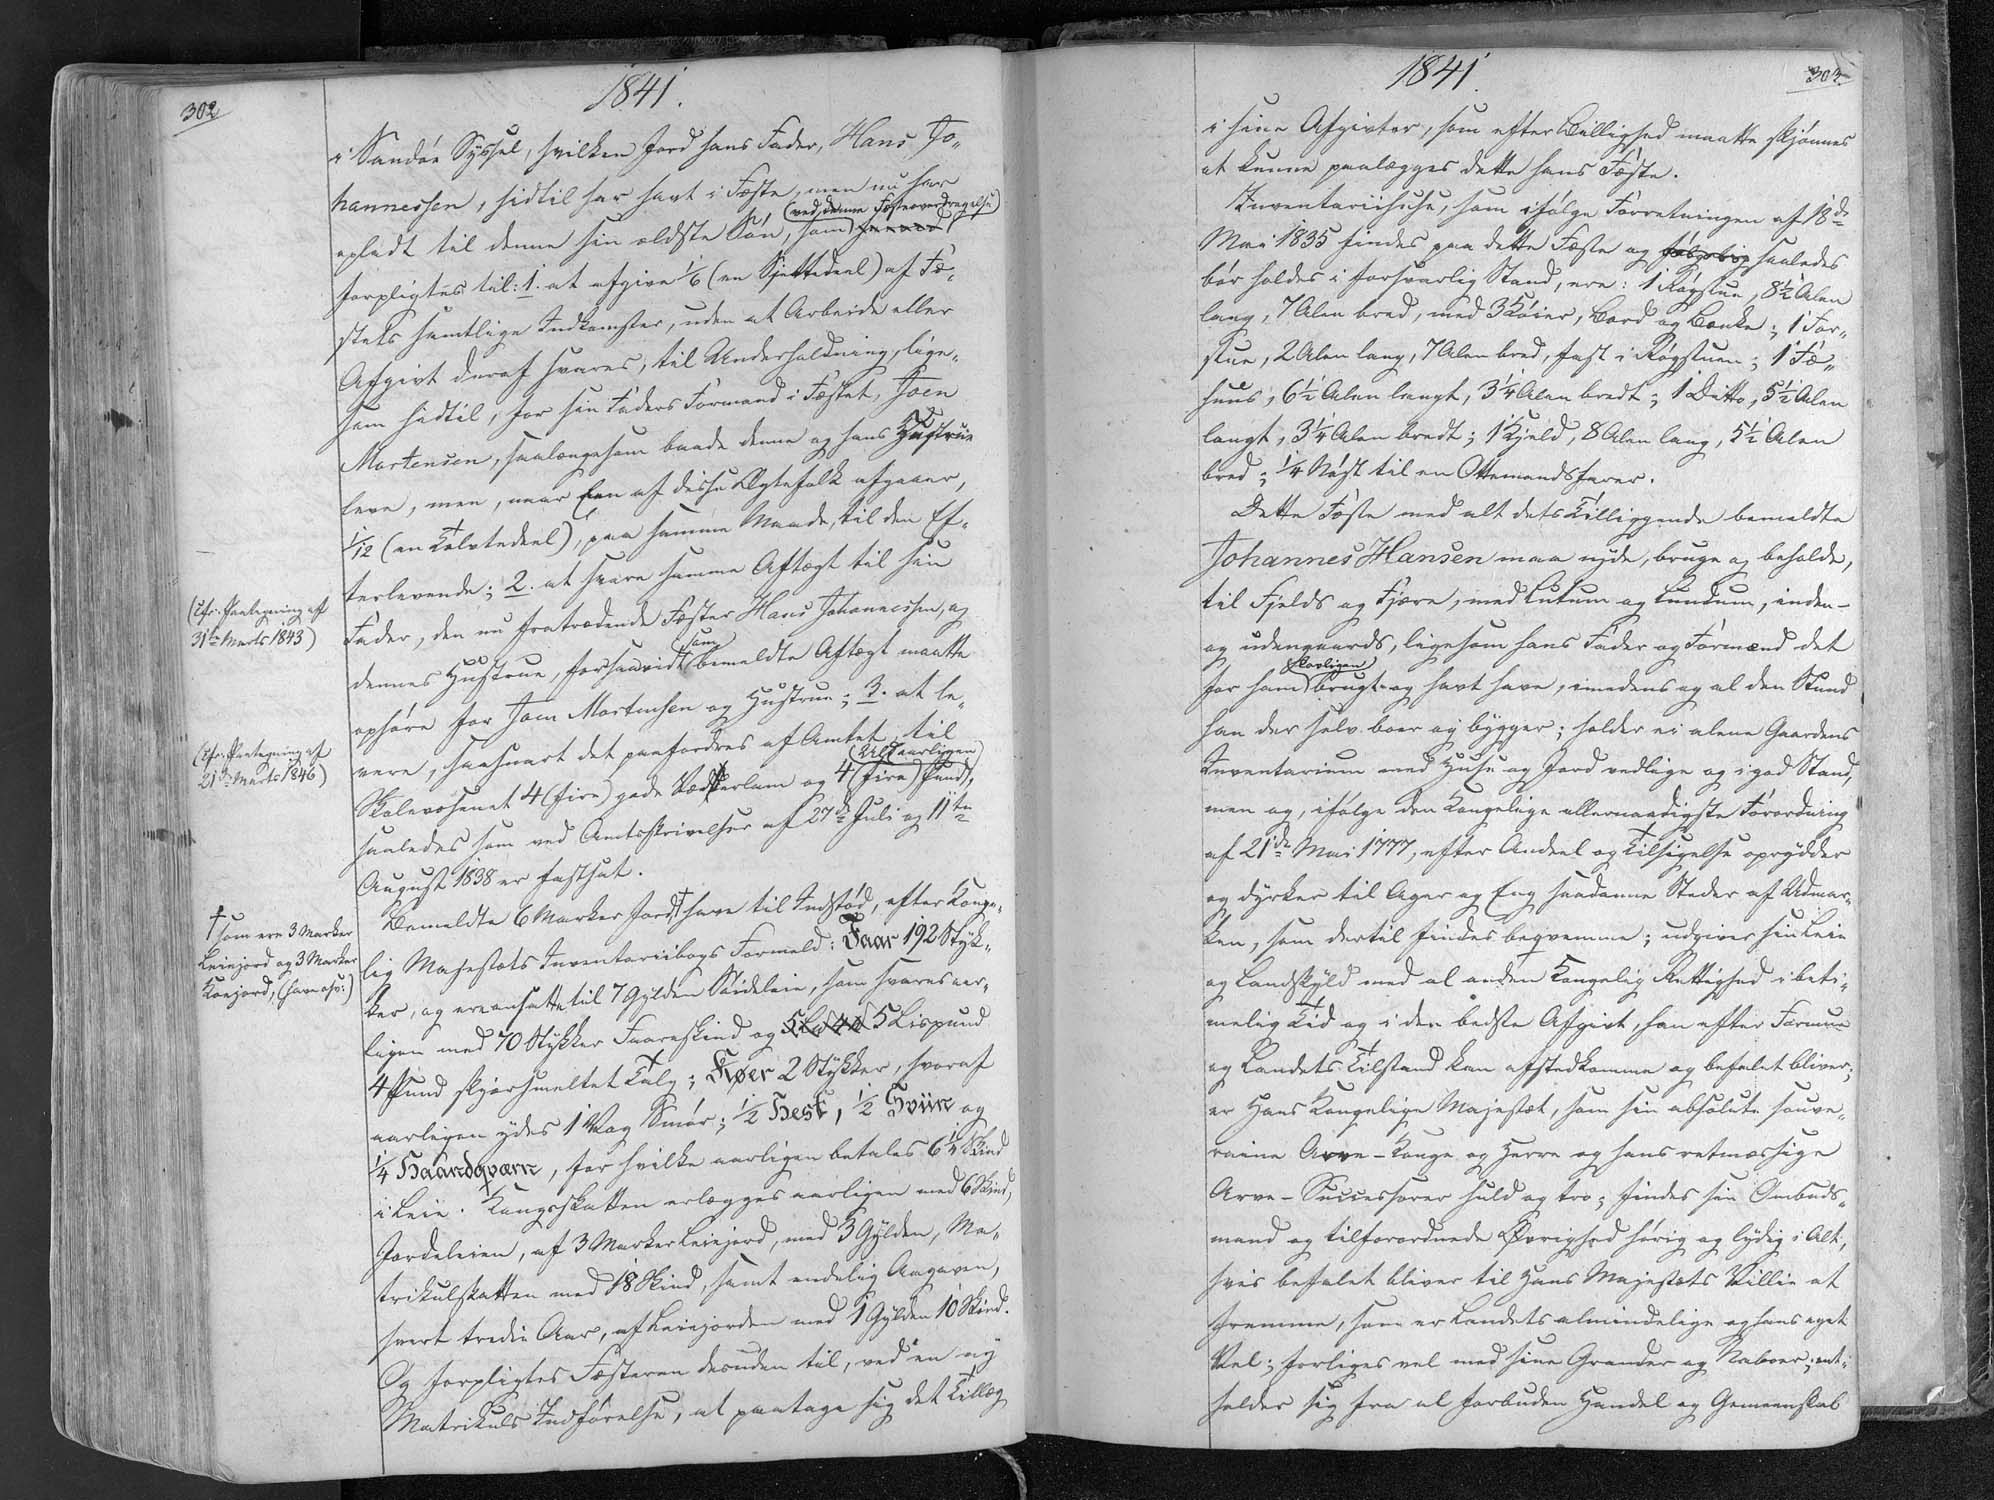 302
1841.
i Sandöe Syssel, hvilken Jord hans Fader, Hans Jo-
hannessen, hidtil har havt i Fæste, men nu har
opladt til denne sin ældste Søn, som (ved denne Fæsteoverdragelse)
forpligtes til: 1. at afgive 1/6 (en Sjettedeel) af Fæ-
stets samtlige Indkomster, uden at Arbeide eller
Afgivt deraf svares, til Underholdning, lige-
som hidtil, for sin Faders Formand i Fæstet, Joen
Mortensen, saalængesom baade denne og hans Hustrue
leve, men, naar Een af disse Ægtefolk afgaaer,
1/12 (en Tolvtedeel), paa samme Maade, til den Ef-
terlevende; 2. at svare samme Aftægt til sin
Fader, den nu fratrædende Fæster Hans Johannessen, og
dennes Hustrue, forsaavidt som bemeldte Aftægt maatte
ophöre for Joen Mortensen og Hustrue; 3. at le-
vere, saasnart det paafordres af Amtet, til
Skolevæsenet 4 (fire) gode Vædderlam og 4 (fire) Pund (Uld aarligen),
saaledes som ved Amtsskrivelser af 27de Juli og 11te
August 1838 er fastsat.
(Cfr. Paategning af
31te Marts 1843)
(Cfr. Paategning af
21de Marts 1846)
Bemeldte 6 Marker Jord † have til Indstød, efter Konge-
lig Majestæts Inventariibogs Formeld: Faar 192 Styk-
ker, og ere ansatte til 7 Gylden Söideleie, som svares aar-
ligen med 70 Stykker Faareskind og 5 Lispund
4 Pund skjørsmeltet Talg; Køer 2 Stykker, hvoraf
aarligen ydes 1 Vog Smör; 1/2 Hest, 1/2 Sviin og
1/4 Haandqværn, for hvilke aarligen betales 6 1/4 Skind
i Leie. Kongsskatten erlægges aarligen med 6 Skind,
Jordeleien, af 3 Marker Leiejord, med 3 Gylden, Ma-
trikulskatten med 18 Skind, samt endelig Angaven,
hvert tredie Aar, af Leiejorden med 1 Gylden 10 Skind.
Og forpligtes Fæsteren desuden til, ved en ny
Matrikuls Indförelse, at paatage sig det Tillæg
† som ere 3 Marker
Leiejord og 3 Marker
Konejord,
303.
1841.
i sine Afgivter, som efter Billighed maatte skjönnes
at kunne paalægges dette hans Fæste.
Inventariihuse, som ifølge Forretningen af 18de
Mai 1835 findes paa dette Fæste og saaledes
bör holdes i forsvarlig Stand, ere: 1 Rögstue, 8 1/2 Alen
lang, 7 Alen bred, med 3 Köier, Bord og Bænke; 1 For-
stue, 2 Alen lang, 7 Alen bred, fast i Rögstuen; 1 Fæ-
huus, 6 1/2 Alen langt, 3 1/4 Alen bredt; 1 Ditto, 5 1/2 Alen
langt, 3 1/4 Alen bredt; 1 Kjeld, 8 Alen lang, 5 1/2 Alen
bred; 1/4 Nöst til en Ottemandsfarer.
Dette Fæste med alt dets Tilliggende bemeldte
Johannes Hansen maa nyde, bruge og beholde,
til Fjelds og Fjære, med Lutum og Lundum, inden-
og udengaards, ligesom hans Fader og Formænd det
for ham (lovligen) brugt og havt have, imedens og al den Stund
han der selv boer og bygger; holder ei alene Gaardens
Inventarium med Huse og Jord vedlige og i god Stand,
men og, ifølge den Kongelige allernaadigste Forordning
af 21de Mai 1777, efter Andeel og Tilsigelse oprydder
og dyrker til Ager og Eng saadanne Steder af Udmar-
ken, som dertil findes beqvemme; udgiver sin Leie
og Landskyld med al anden Kongelig Rettighed i beti-
melig Tid og i den bedste Afgivt, han efter Formue
og Landets Tilstand kan afstedkomme og befalet bliver;
er Hans Kongelige Majestæt, som sin absolute souve-
raine Arve-Konge og Herre og hans retmæssige
Arve-Successorer huld og tro; findes sin Ombuds-
mand og tilforordnede Øvrighed hörig og lydig i Alt,
hvis befalet bliver til Hans Majestæts Villie at
fremme, som er Landets almindelige og hans eget
Vel; forliges vel med sine Grander og Naboer; ent-
holder sig fra al forbuden Handel og Gemeenskab